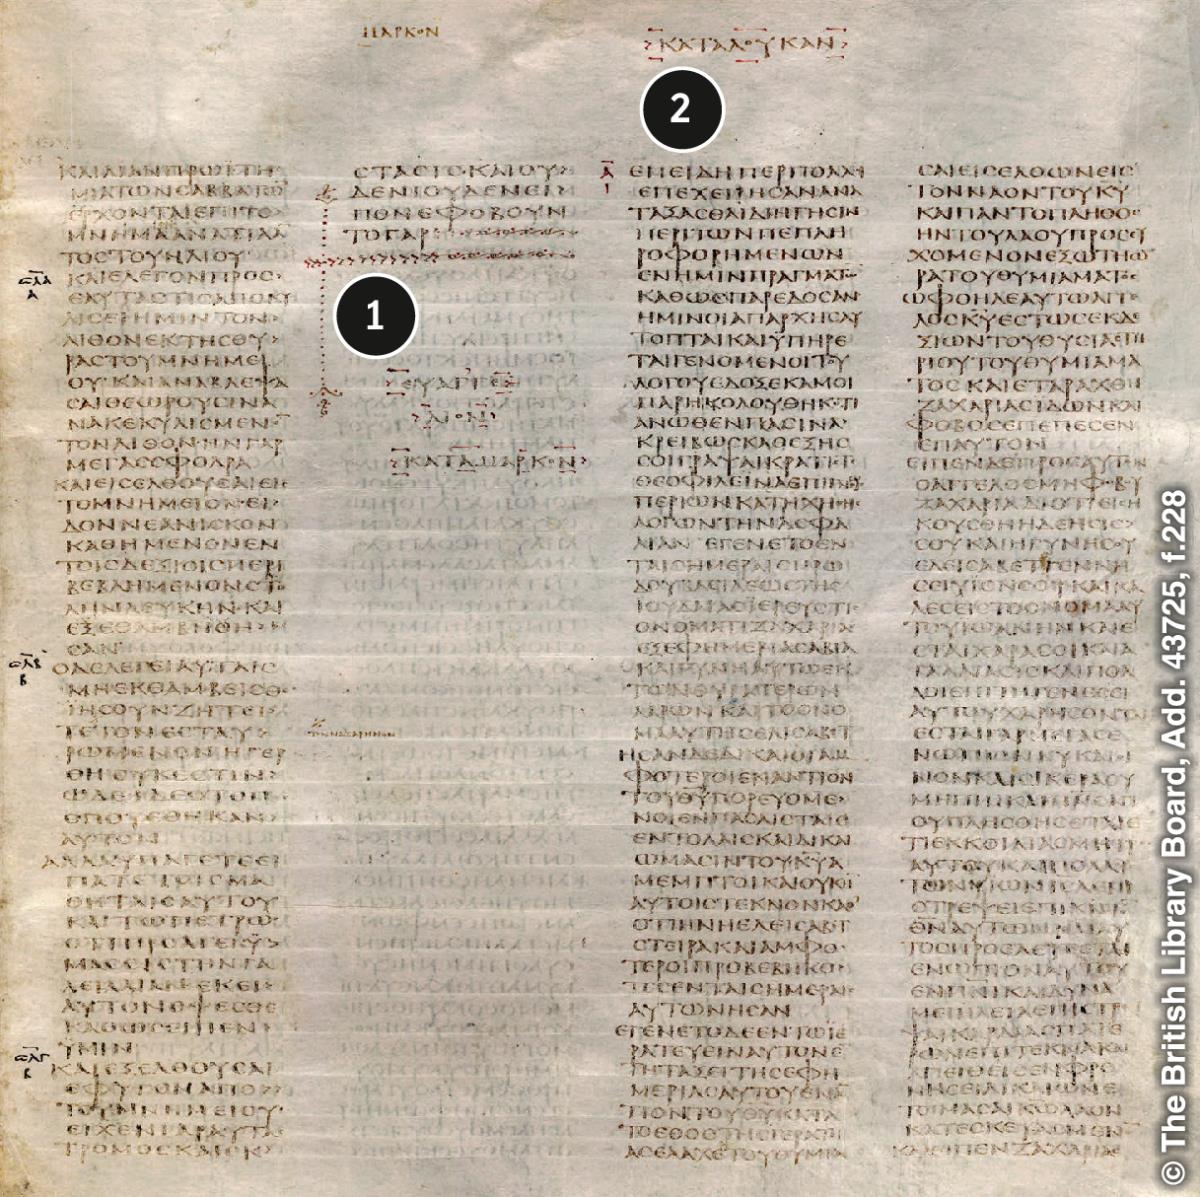 ΜΑΡΚΟΝ
ΚΑΤΑΛΟΥΚΑΝ
ΚΑΙΛΙΑΝΠΡΩΪΤΗ
ΜΙΑΤΩΝϹΑΒΒΑΤΩ
ΕΡΧΟΝΤΑΙΕΠΙΤΟ
ΜΝΗΜΑΑΝΑΤΙΛΑ
ΤΟϹΤΟΥΗΛΙΟΥ
ΚΑΙΕΛΕΓΟΝΠΡΟϹ
ΕΑΥΤΑϹΤΙϹΑΠΟΚΥ
ΛΙϹΕΙΗΜΙΝΤΟΝ
ΛΙΘΟΝΕΚΤΗϹΘΥ
ΡΑϹΤΟΥΜΝΗΜΕΙ
ΟΥΚΑΙΑΝΑΒΛΕΨΑ
ϹΑΙΘΕΩΡΟΥϹΙΝΑ
ΝΑΚΕΚΥΛΙϹΜΕΝΟ
ΤΟΝΛΙΘΟΝΗΝΓΑΡ
ΜΕΓΑϹϹΦΟΔΡΑ
ΚΑΙΕΙϹΕΛΘΟΥϹΑΙΕΙϹ
ΤΟΜΝΗΜΕΙΟΝΕΙ
ΔΟΝΝΕΑΝΙϹΚΟΝ
ΚΑΘΗΜΕΝΟΝΕΝ
ΤΟΙϹΔΕΞΙΟΙϹΠΕΡΙ
ΒΕΒΛΗΜΕΝΟΝϹΤΟ
ΛΗΝΛΕΥΚΗΝΚΑΙ
ΕΞΕΘΑΜΒΗΘΗ
ϹΑΝ
ΟΔΕΛΕΓΕΙΑΥΤΑΙϹ
ΜΗΕΚΘΑΜΒΕΙϹΘΕ
ΙΗϹΟΥΝΖΗΤΕΙ
ΤΕΤΟΝΕϹΤΑΥ
ΡΩΜΕΝΟΝΗΓΕΡ
ΘΗΟΥΚΕϹΤΙΝ
ΩΔΕΪΔΕΟΤΟΠΟϹ
ΟΠΟΥΕΘΗΚΑΝ
ΑΥΤΟΝ
ΑΛΛΑΥΠΑΓΕΤΕΕΙ
ΠΑΤΕΤΟΙϹΜΑ
ΘΗΤΑΙϹΑΥΤΟΥ
ΚΑΙΤΩΠΕΤΡΩ
ΟΤΙΠΡΟΑΓΕΙΫ
ΜΑϹΕΙϹΤΗΝΓΑ
ΛΙΛΑΙΑΝΕΚΕΙ
ΑΥΤΟΝΟΨΕϹΘΕ
ΚΑΘΩϹΕΙΠΕΝ
ΫΜΙΝ
ΚΑΙΕΞΕΛΘΟΥϹΑΙ
ΕΦΥΓΟΝΑΠΟ
ΤΟΥΜΝΗΜΕΙΟΥ
ΕΙΧΕΝΓΑΡΑΥΤΑϹ
ΤΡΟΜΟϹΚΑΙΕΚ
ϹΤΑϹΙϹΚΑΙΟΥ
ΔΕΝΙΟΥΔΕΝΕΙ
ΠΟΝΕΦΟΒΟΥΝ
ΤΟΓΑΡ
1
ΕΥΑΓΓΕ
ΛΙΟΝ
ΚΑΤΑΜΑΡΚΟΝ
2
ΕΠΕΙΔΗΠΕΡΠΟΛΛΟΙ
ΕΠΕΧΕΙΡΗϹΑΝΑΝΑ
ΤΑΞΑϹΘΑΙΔΙΗΓΗϹΙΝ
ΠΕΡΙΤΩΝΠΕΠΛΗ
ΡΟΦΟΡΗΜΕΝΩΝ
ΕΝΗΜΙΝΠΡΑΓΜΑΤΩ
ΚΑΘΩϹΠΑΡΕΔΟϹΑΝ
ΗΜΙΝΟΙΑΠΑΡΧΗϹΑΥ
ΤΟΠΤΑΙΚΑΙΥΠΗΡΕ
ΤΑΙΓΕΝΟΜΕΝΟΙΤΟΥ
ΛΟΓΟΥΕΔΟΞΕΚΑΜΟΙ
ΠΑΡΗΚΟΛΟΥΘΗΚΟΤΙ
ΑΝΩΘΕΝΠΑϹΙΝΑ
ΚΡΕΙΒΩϹΚΑΘΕΞΗϹ
ϹΟΙΓΡΑΨΑΙΚΡΑΤΙϹΤΕ
ΘΕΟΦΙΛΕΙΝΑΕΠΙΓΝΩϹ
ΠΕΡΙΩΝΚΑΤΗΧΗΘΗϹ
ΛΟΓΩΝΤΗΝΑϹΦΑ
ΛΙΑΝΕΓΕΝΕΤΟΕΝ
ΤΑΙϹΗΜΕΡΑΙϹΗΡΩ
ΔΟΥΒΑϹΙΛΕΩϹΤΗϹ
ΙΟΥΔΑΙΑϹΪΕΡΕΥϹΤΙϹ
ΟΝΟΜΑΤΙΖΑΧΑΡΙΑϹ
ΕΞΕΦΗΜΕΡΙΑϹΑΒΙΑ
ΚΑΙΓΥΝΗΑΥΤΩΕΚ
ΤΩΝΘΥΓΑΤΕΡΩΝ
ΑΑΡΩΝΚΑΙΤΟΟΝΟ
ΜΑΑΥΤΗϹΕΛΙϹΑΒΕΤ
ΗϹΑΝΔΕΔΙΚΑΙΟΙΑΜ
ΦΟΤΕΡΟΙΕΝΑΝΤΙΟΝ
ΤΟΥΘΥΠΟΡΕΥΟΜΕ
ΝΟΙΕΝΠΑϹΑΙϹΤΑΙϹ
ΕΝΤΟΛΑΙϹΚΑΙΔΙΚΑΙ
ΩΜΑϹΙΝΤΟΥΚΥΑ
ΜΕΜΠΤΟΙΚΑΙΟΥΚΗ
ΑΥΤΟΙϹΤΕΚΝΟΝΚΑ
ΟΤΙΗΝΗΕΛΕΙϹΑΒΕΤ
ϹΤΕΙΡΑΚΑΙΑΜΦΟ
ΤΕΡΟΙΠΡΟΒΕΒΗΚΟ
ΤΕϹΕΝΤΑΙϹΗΜΕΡΑΙϹ
ΑΥΤΩΝΗϹΑΝ
ΕΓΕΝΕΤΟΔΕΕΝΤΩΪΕ
ΡΑΤΕΥΕΙΝΑΥΤΟΝΕ
ΤΗΤΑΞΕΙΤΗϹΕΦΗ
ΜΕΡΙΑϹΑΥΤΟΥΕΝΑ
ΤΙΟΝΤΟΥΘΥΚΑΤΑ
ΤΟΕΘΟϹΤΗϹΪΕΡΑΤΙ
ΑϹΕΛΑΧΕΤΟΥΘΥΜΙΑ
ϹΑΙΕΙϹΕΛΘΩΝΕΙϹ
ΤΟΝΝΑΟΝΤΟΥΚΥ
ΚΑΙΠΑΝΤΟΠΛΗΘΟϹ
ΗΝΤΟΥΛΑΟΥΠΡΟϹΕΥ
ΧΟΜΕΝΟΝΕΞΩΤΗΩ
ΡΑΤΟΥΘΥΜΙΑΜΑΤΟϹ
ΩΦΘΗΔΕΑΥΤΩΑΓΓΕ
ΛΟϹΚΥΕϹΤΩϹΕΚΔΕ
ΞΙΩΝΤΟΥΘΥϹΙΑϹΤΗ
ΡΙΟΥΤΟΥΘΥΜΙΑΜΑ
ΤΟϹΚΑΙΕΤΑΡΑΧΘΗ
ΖΑΧΑΡΙΑϹΙΔΩΝΚΑΙ
ΦΟΒΟϹΕΠΕΠΕϹΕΝ
ΕΠΑΥΤΟΝ
ΕΙΠΕΝΔΕΠΡΟϹΑΥΤΟΝ
ΟΑΓΓΕΛΟϹΜΗΦΟΒΟΥ
ΖΑΧΑΡΙΑΔΙΟΤΙΕΙϹΗ
ΚΟΥϹΘΗΗΔΕΗϹΙϹ
ϹΟΥΚΑΙΗΓΥΝΗϹΟΥ
ΕΛΕΙϹΑΒΕΤΓΕΝΝΗ
ϹΕΙΥΙΟΝϹΟΙΚΑΙΚΑ
ΛΕϹΕΙϹΤΟΟΝΟΜΑΑΥ
ΤΟΥΙΩΑΝΝΗΝΚΑΙΕ
ϹΤΑΙΧΑΡΑϹΟΙΚΑΙ
ΑΓΑΛΛΙΑϹΙϹΚΑΙΠΟΛ
ΛΟΙΕΠΙΤΗΓΕΝΕϹΕΙ
ΑΥΤΟΥΧΑΡΗϹΟΝΤΑΙ
ΕϹΤΑΙΓΑΡΜΕΓΑϹΕ
ΝΩΠΙΟΝΚΥΚΑΙΟΙ
ΝΟΝΚΑΙϹΙΚΕΡΑΟΥ
ΜΗΠΙΗΚΑΙΠΝϹΑΓΙ
ΟΥΠΛΗϹΘΗϹΕΤΑΙΕ
ΤΙΕΚΚΟΙΛΙΑϹΜΗΤΡΟϹ
ΑΥΤΟΥΚΑΙΠΟΛΛΟΥϹ
ΤΩΝΥΙΩΝΙϹΡΑΗΛΕΠΙ
ϹΤΡΕΨΕΙΕΠΙΚΝΤΟΝ
ΘΝΑΥΤΩΝΚΑΙΑΥ
ΤΟϹΠΡΟΕΛΕΥϹΕΤΑΙ
ΕΝΩΠΙΟΝΑΥΤΟΥ
ΕΝΠΝΙΚΑΙΔΥΝΑ
ΜΕΙΗΛΕΙΑΕΠΙϹΤΡΕ
ΨΑΙΚΑΡΔΙΑϹΠΑΤΕ
ΡΩΝΕΠΙΤΕΚΝΑΚΑΙ
ΑΠΕΙΘΕΙϹΕΝΦΡΟ
ΝΗϹΕΙΔΙΚΑΙΩΝΕ
ΤΟΙΜΑϹΑΙΚΩΛΑΟΝ
ΚΑΤΕϹΚΕΥΑϹΜΕΝΟΝ
ΚΑΙΕΙΠΕΝΖΑΧΑΡΙΑϹ
© The British Library Board, Add. 43725, f.228